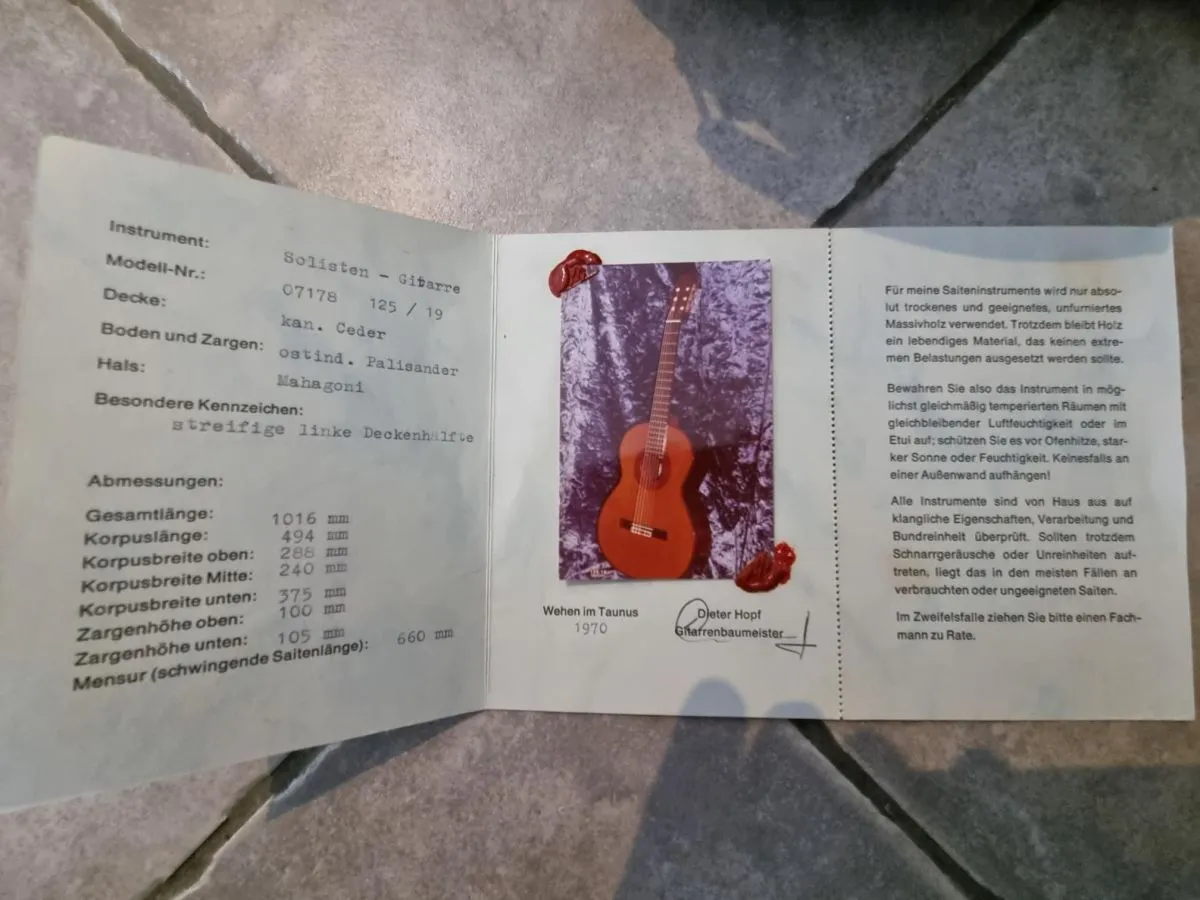 Instrument: Solisten - Gitarre
Modell-Nr.: 07178 125 / 19
Decke: kan. Ceder
Boden und Zargen: ostind. Palisander
Hals: Mahagoni
Besondere Kennzeichen:
streifige linke Deckenhälfte
Abmessungen:
Gesamtlänge: 1016 mm
Korpuslänge: 494 mm
Korpusbreite oben: 288 mm
Korpusbreite Mitte: 240 mm
Korpusbreite unten: 375 mm
Zargenhöhe oben: 100 mm
Zargenhöhe unten: 105 mm
Mensur (schwingende Saitenlänge): 660 mm
Wehen im Taunus
1970
Dieter Hopf
Gitarrenbaumeister
Für meine Saiteninstrumente wird nur abso-
lut trockenes und geeignetes, unfurniertes
Massivholz verwendet. Trotzdem bleibt Holz
ein lebendiges Material, das keinen extre-
men Belastungen ausgesetzt werden sollte.
Bewahren Sie also das Instrument in mög-
lichst gleichmäßig temperierten Räumen mit
gleichbleibender Luftfeuchtigkeit oder im
Etui auf; schützen Sie es vor Ofenhitze, star-
ker Sonne oder Feuchtigkeit. Keinesfalls an
einer Außenwand aufhängen!
Alle Instrumente sind von Haus aus auf
klangliche Eigenschaften, Verarbeitung und
Bundreinheit überprüft. Sollten trotzdem
Schnarrgeräusche oder Unreinheiten auf-
treten, liegt das in den meisten Fällen an
verbrauchten oder ungeeigneten Saiten.
Im Zweifelsfalle ziehen Sie bitte einen Fach-
mann zu Rate.